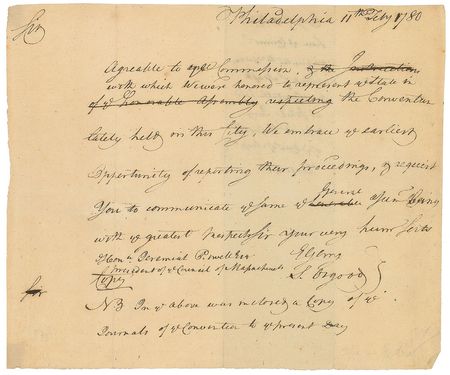 Philadelphia 11th Feby 1780
Sir
Agreeable to Commission, & the Instructions
with which We were honored to represent ye State in
of ye Honorable Assembly respecting the Convention
lately held on this City, We embrace ye earliest
Opportunity of reporting their proceedings, & request
General
You to communicate ye same ye Assembly being
with ye greatest respect Sir your very humr Servts
Honr. Jeremiah Powell Esqr E Gerry
President of ye Council of Massachusetts S. Osgood
Copy
NB In ye above was inclosed a Copy of ye
Journals of ye Convention to ye present Day